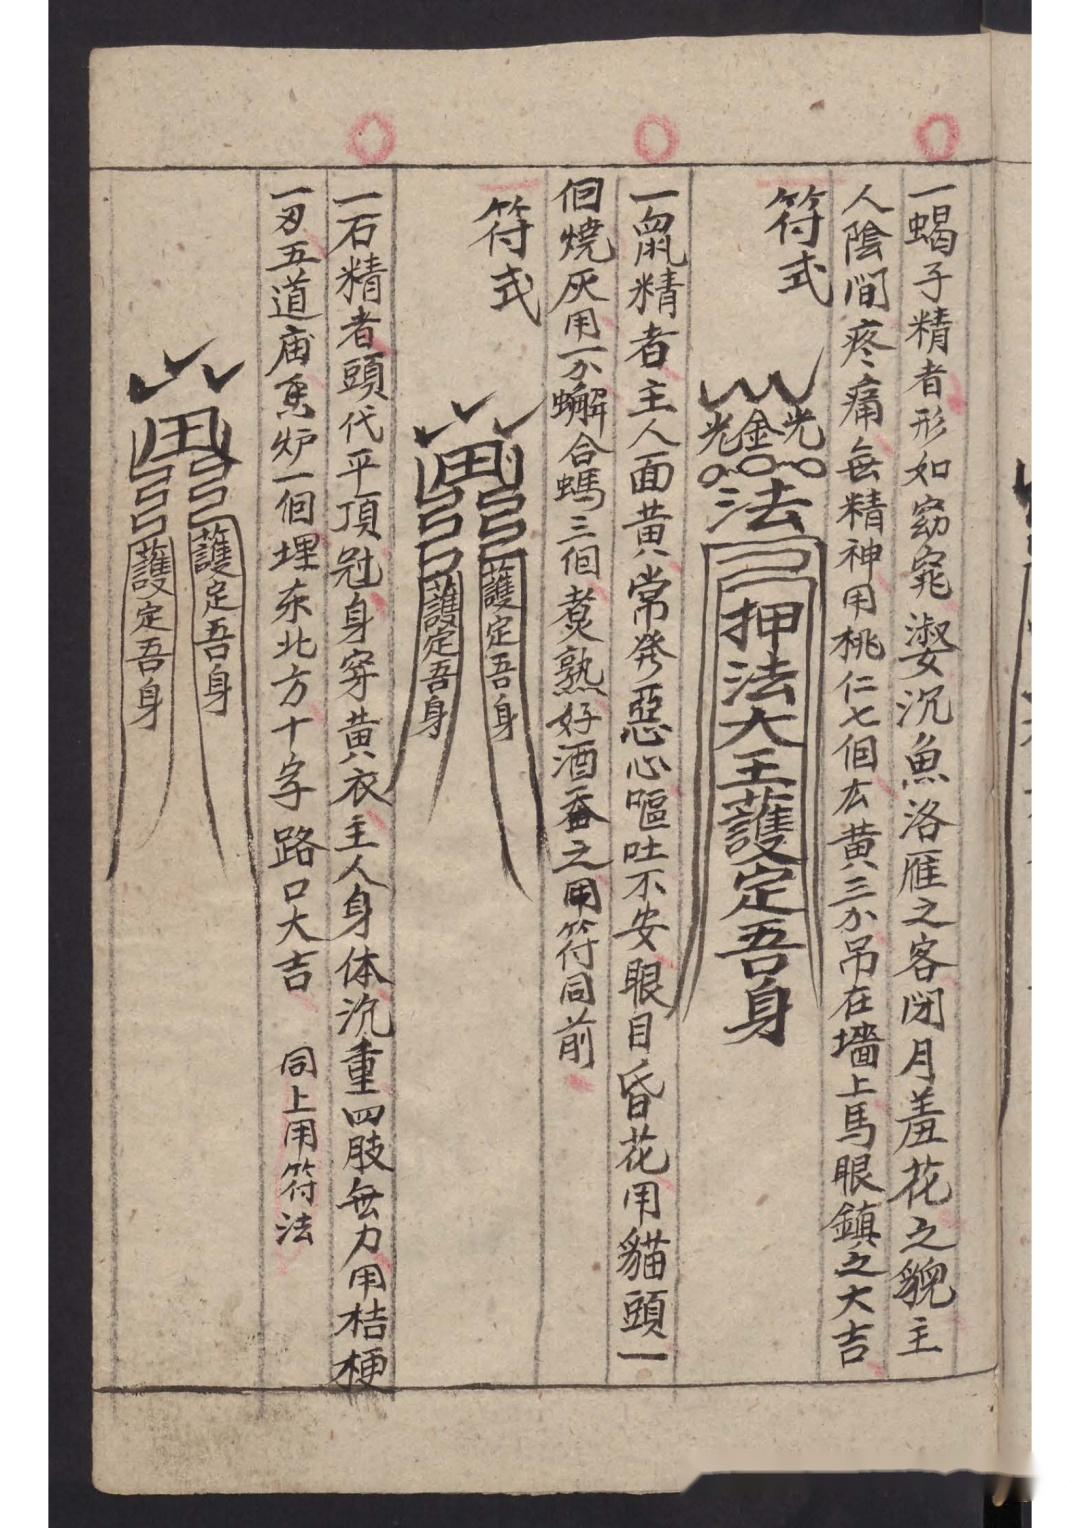 一蝎子精者形如窈窕淑女沉魚洛雁之客閉月羞花之貌主
人陰間疼痛無精神用桃仁七個玄黄三分吊在墻上馬眼鎮之大吉
符式
光金光
法
押法大王護定吾身
一鼠精者主人面黄常発惡心嘔吐不安眼目昏花用貓頭一
個燒灰用一分蠏合螞三個煮熟好酒吞之用符同前
符式
護定吾身
護定吾身
一石精者頭代平頂冠身穿黄衣主人身体沉重四肢無力用桔梗
一刃五道庙香炉一個埋东北方十字路口大吉 同上用符法
護定吾身
護定吾身